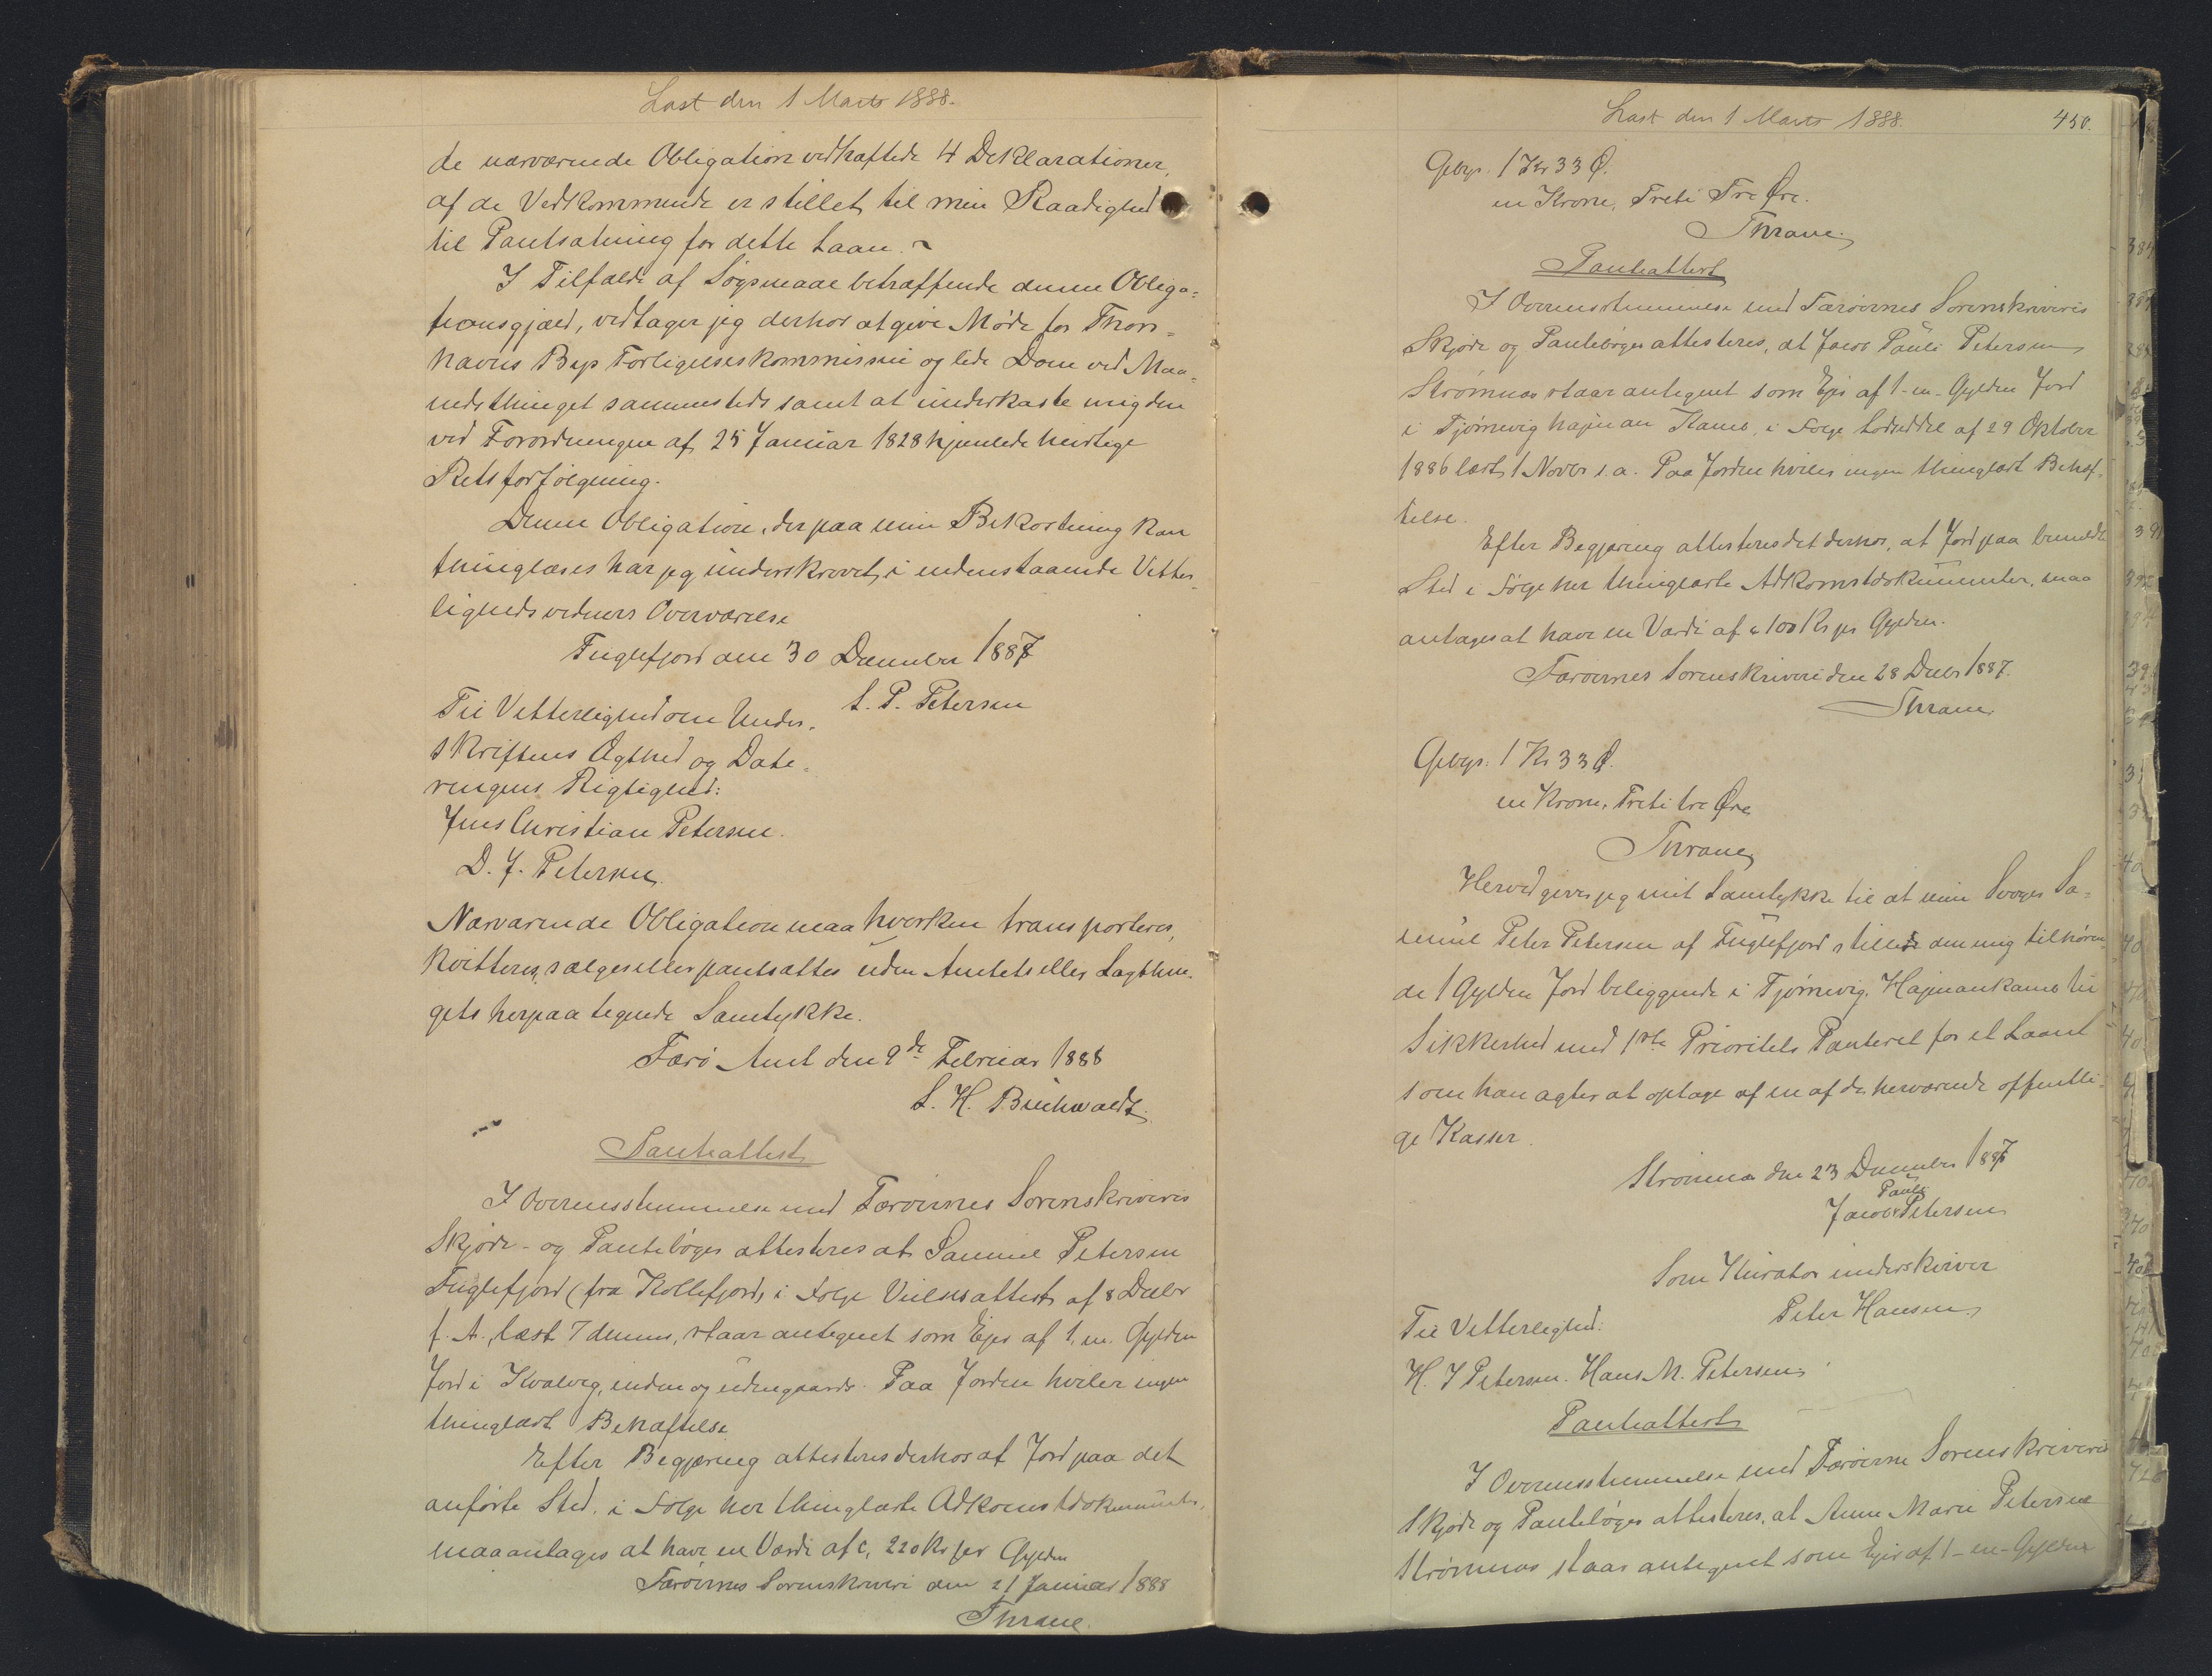 Læst den 1 Marts 1888.
de nærværende Obligation vedhæftede 4 Deklarationer,
af de Vedkommende er stillet til min Raadighed
til Pantsætning for dette Laan. ~
I Tilfælde af Søgsmaal betræffende denne Obliga-
tionsgjæld, vedtager jeg derhos at give Møde for Thors-
havns Byes Forligelseskommission og lide Dom ved Maa-
nedsthinget sammesteds samt at underkaste mig den
ved Forordningen af 25 Januar 1828 hjemlede hurtige
Retsforfølgning.
Denne Obligation, der paa min Bekostning kan
thinglæses har jeg underskrevet i undenstaaende Vitter-
lighedsvidners Overværelse
Fuglefjord den 30 December 1887
S. P. Petersen
Til Vitterlighed om Under-
skriftens Ægthed og Date-
ringens Rigtighed:
Jens Christian Petersen.
D. J. Petersen
Nærværende Obligation maa hverken transporteres,
kvitteres, sælges eller pantsættes uden Amtets eller Lagthin-
gets herpaa tegnede Samtykke.
Færø Amt den 9de Februar 1888
L. H. Buchwaldt.
Panteattest
I Overensstemmelse med Færøernes Sorenskriveris
Skjøde- og Pantebøger attesteres at Samuel Petersen
Fuglefjord (fra Kollefjord) i Følge Vielsesattest af 8 Decbr
f. A., læst 7 dennes, staar antegnet som Ejer af 1. en. Gylden
Jord i Kvalvig, inden og udengaards. Paa Jorden hviler ingen
thinglæst Behæftelse
Efter Begjæring attesteres derhos at Jord paa det
anførte Sted. i Følge her thinglæste Adkomstdokumenter,
maa antages at have en Værdi af c. 220 Kr per Gylden
Færøernes Sorenskriveri den 21 Januar 1888
Thrane
Læst den 1 Marts 1888.
450.
Gebyr. 1 Kr 33 Ø.
en Krone, Treti Tre Øre.
Thrane
Panteattest
I Overensstemmelse med Færøernes Sorenskriveris
Skjøde og Pantebøger attesteres, at Jacob Pauli Petersen
Strømnæs staar antegnet som Ejer af 1 - en - Gylden Jord
i Tjørnevig højman Kamb, i Følge Lodseddel af 29 Oktober
1886 læst 1 Novbr s. a. Paa Jorden hviler ingen thinglæst Behæf-
telse.
Efter Begjæring attesteres det derhos, at Jord paa bemeldte
Sted i Følge her thinglæste Adkomstdokumenter, maa
antages at have en Værdi af c 100 Kr pr Gylden.
Færøernes Sorenskriveri den 28 Decbr 1887.
Thrane
Gebyr: 1 Kr 33 Ø.
en Krone, Treti tre Øre
Thrane
Herved giver jeg mit Samtykke til at min Svoger Sa-
muel Peter Petersen af Fuglefjord stiller den mig tilhøren-
de 1 Gylden Jord beliggende i Tjørnevig, Højmankamb til
Sikkerhed med 1ste Prioritets Panteret for et Laan
som han agter at optage af en af de herværende offentli-
ge Kasser.
Strømnæs den 23 December 1887
Pauli
Jacob Petersen
Som Kurator underskriver
Peter Hansen
Til Vitterlighed:
H. J Petersen. Hans M. Petersen
Panteattest
I Overensstemmelse med Færøerne Sorenskriveris
Skjøde og Pantebøger attesteres, at Anne Marie Petersen
Strømnæs staar antegnet som Ejer af 1 - en - Gylden